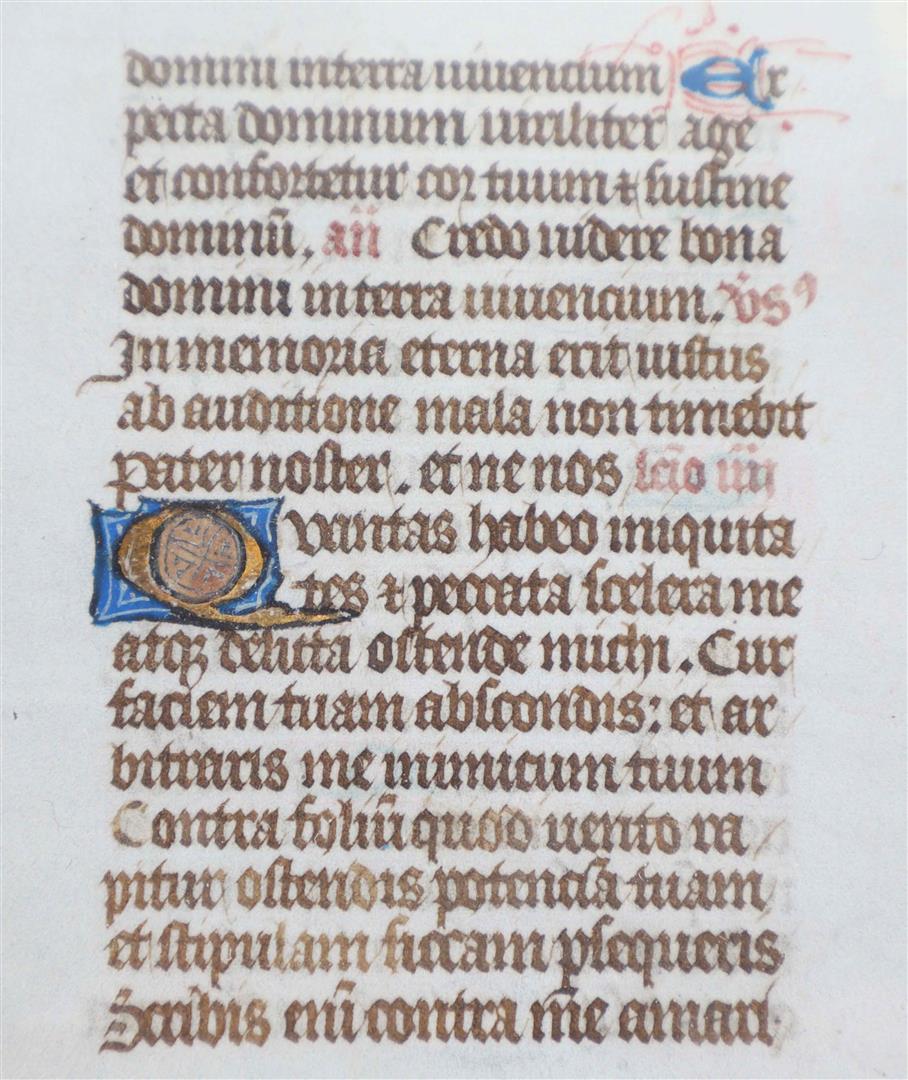 domini in terra uiuencium Ex
pecta dominum uiriliter age
et confortetur cor tuum & sustine
dominū. añ Credo uidere bona
domini in terra uiuencium. v̄sꝰ
In memoria eterna erit iustus
ab auditione mala non timebit
Pater noster. et ne nos lc̄io iiii
Quantas habeo iniquita
tes & peccata scelera me
atqꝫ delicta ostende michi. Cur
faciem tuam abscondis: et ar
bitraris me inimicum tuum
Contra foliū quod uento ra
pitur ostendis potenciā tuam
et stipulam siccam ꝑsequeris
Scribis enī contra me amari